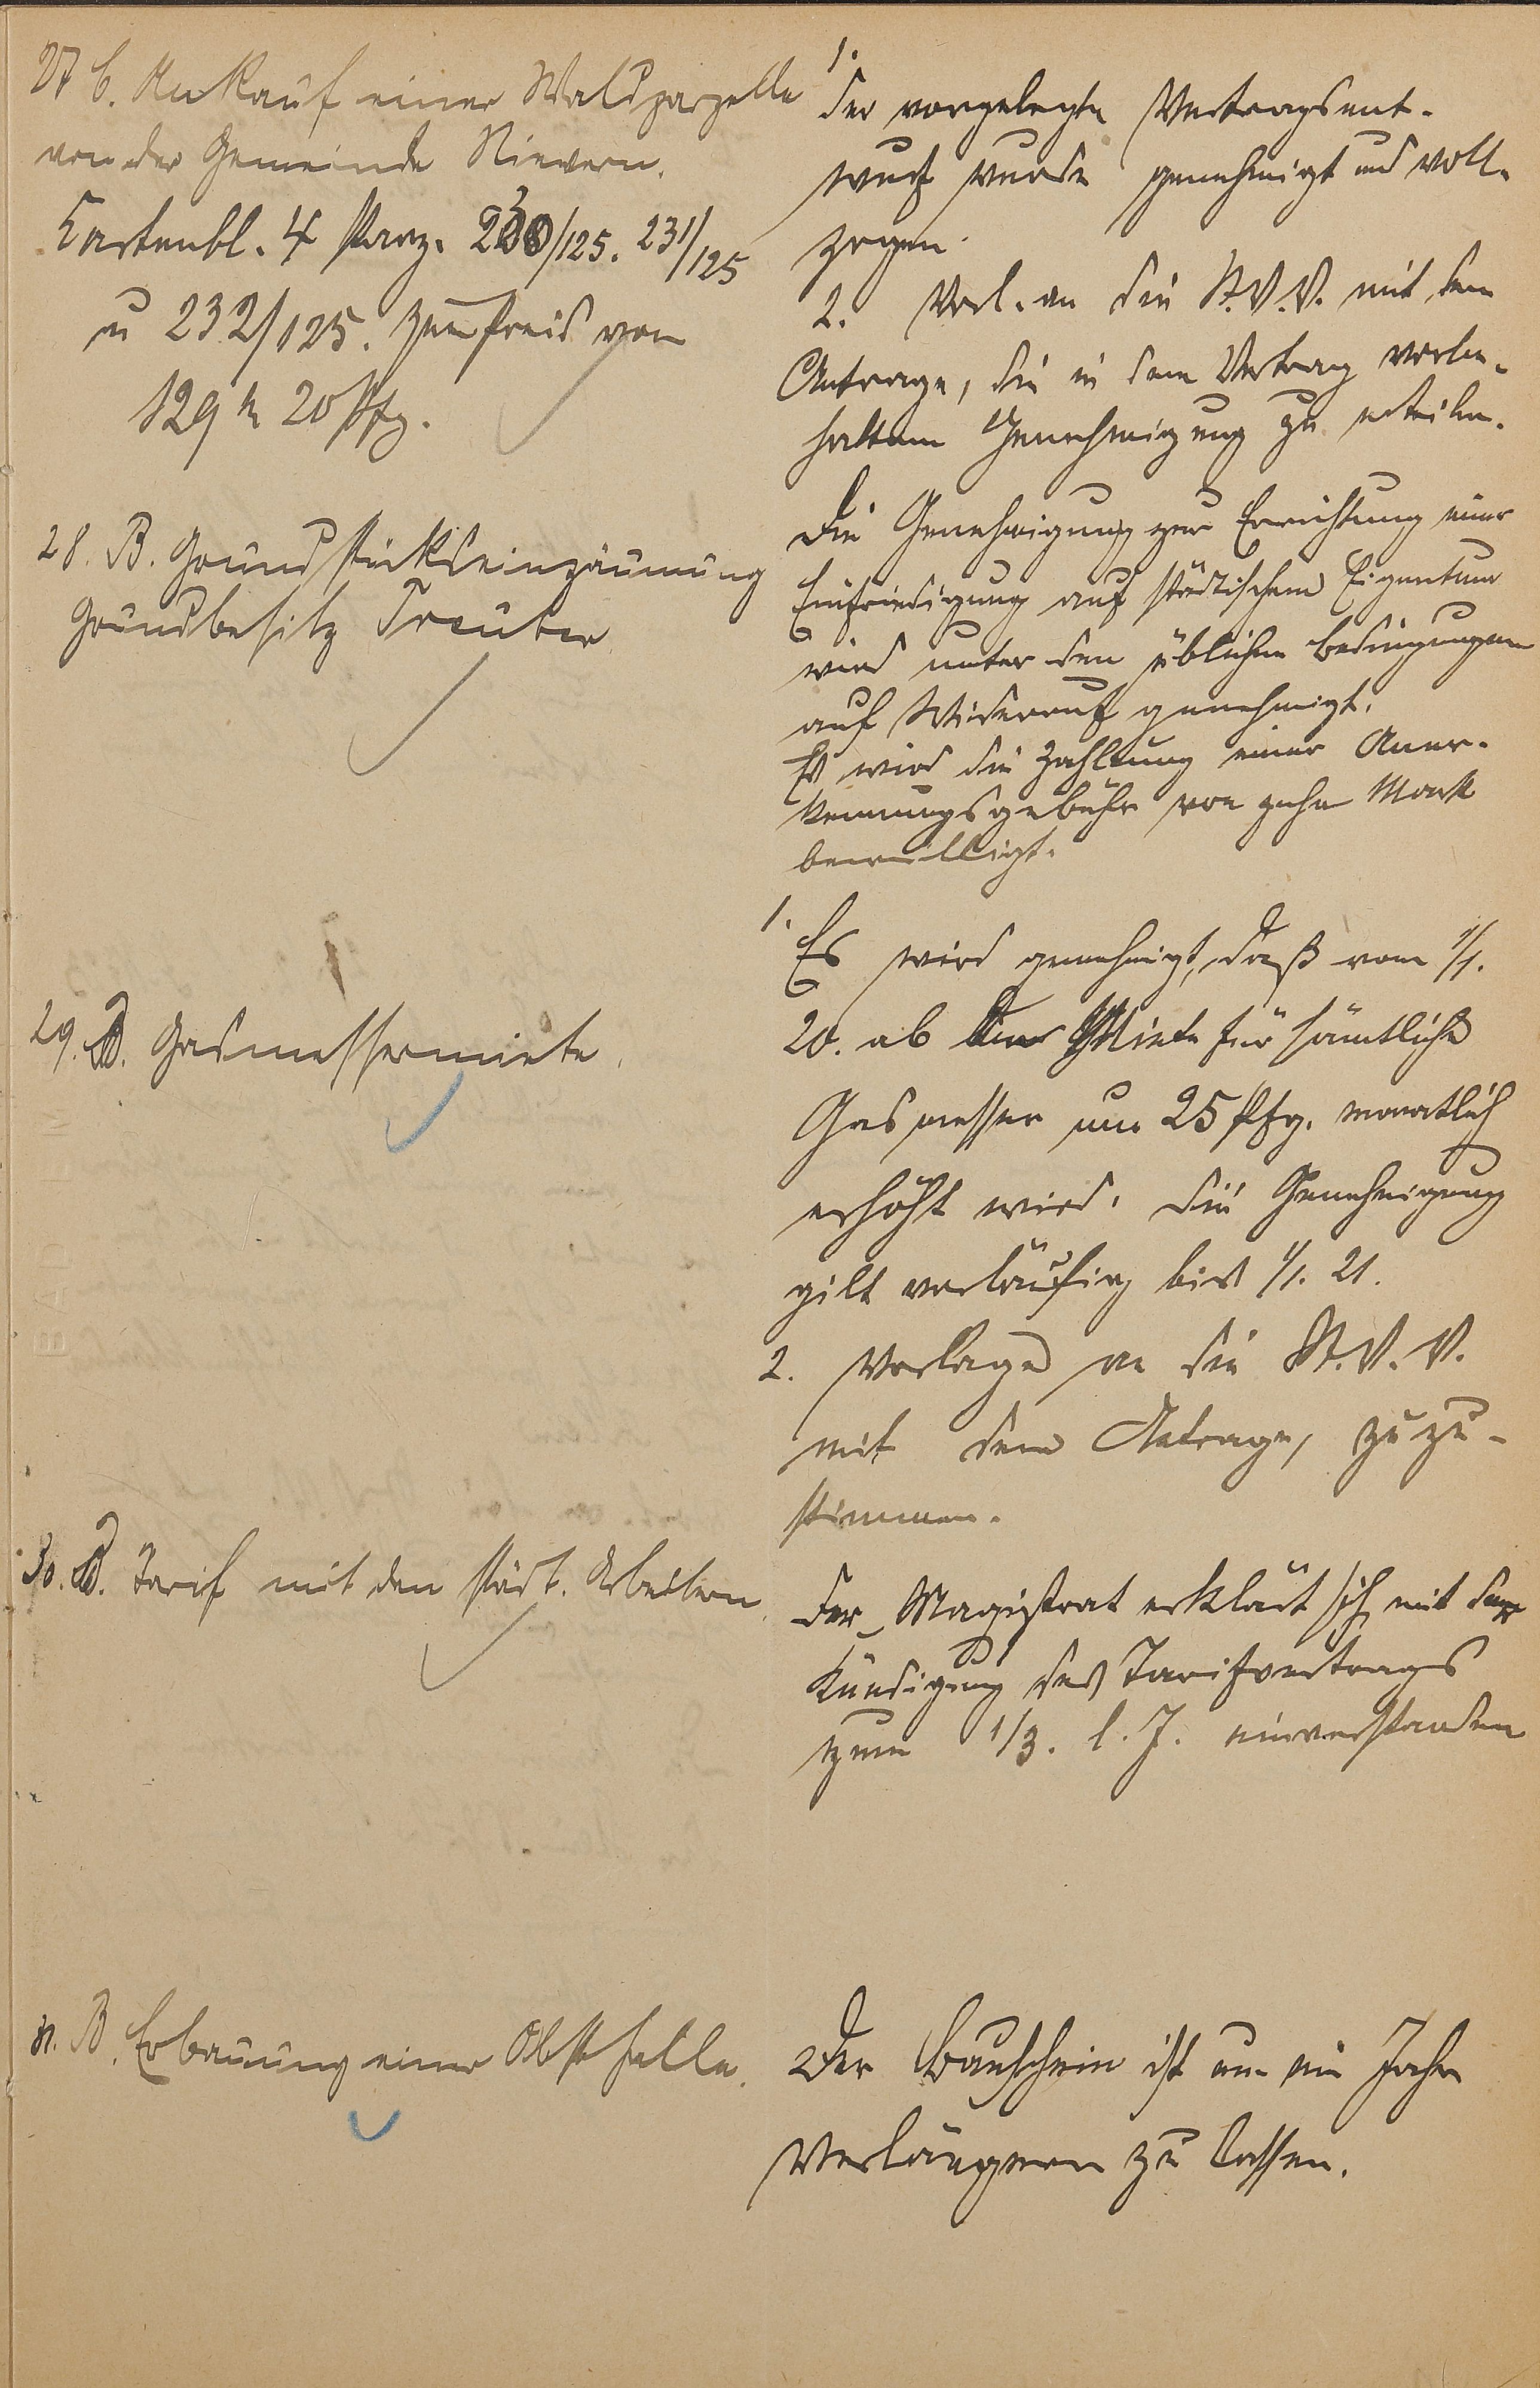 27 b. Ankauf einer Waldparzelle
von der Gemeinde Nievern.
Kartenbl. 4 Parz. 230/125. 231/125
u 232/125. zum Preis von
129 M 20 Pfg.
1.
Der vorgelegte Vertragsent-
wurf wurde genehmigt und voll-
zogen.
2. Vorl. an die St.V.V. mit dem
Antrage, die in dem Vertrag vorbe-
haltene Genehmigung zu erteilen.
28. B. Grundstückseinzäunung
Grundbesitz Treuber
Die Genehmigung zur Errichtung einer
Einfriedigung auf städtischem Eigentum
wird unter den üblichen Bedingungen
auf Widerruf genehmigt.
Es wird die Zahlung einer Aner-
kennungsgebühr von zehn Mark
bewilligt.
29. B. Gasmessermiete.
1. Es wird genehmigt, daß vom 1/1.
20. ab die Miete für sämtliche
Gasmesser um 25 Pfg. monatlich
erhöht wird. Die Genehmigung
gilt vorläufig bis 1/1. 21.
2. Vorlage an die St.V.V.
mit dem Antrage, zuzu-
stimmen.
30. B. Tarif mit den städt. Arbeitern.
Der Magistrat erklärt sich mit der
Kündigung des Tarifvertrages
zum 1/3. l. J. einverstanden
31. B. Erbauung einer Obsthalle.
Der Bauschein ist um ein Jahr
verlängern zu lassen.